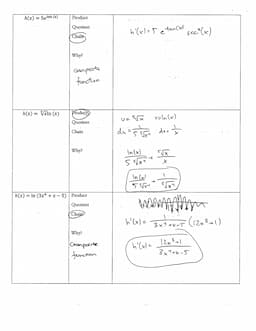 h(x) = 5e^tan(x)
Product
Quotient
Chain
Why?
Composite
function
h'(x) = 5 e^tan(x) sec²(x)
h(x) = ⁵√x ln(x)
Product
Quotient
Chain
Why?
u = ⁵√x v = ln(x)
ln(x)
x
ln(x)
h(x) = ln (3x⁴ + x − 5)
Product
Quotient
Chain
Why?
Composite
function
h'(x) = 1 / 3x⁴+x-5 (12x³+1)
h'(x) = 12x³+1 / 3x⁴+x-5